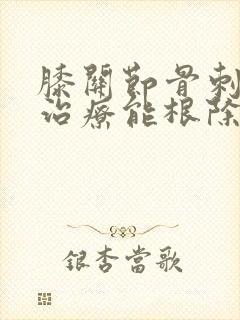 膝關節骨刺
治療能根除
銀杏當歌